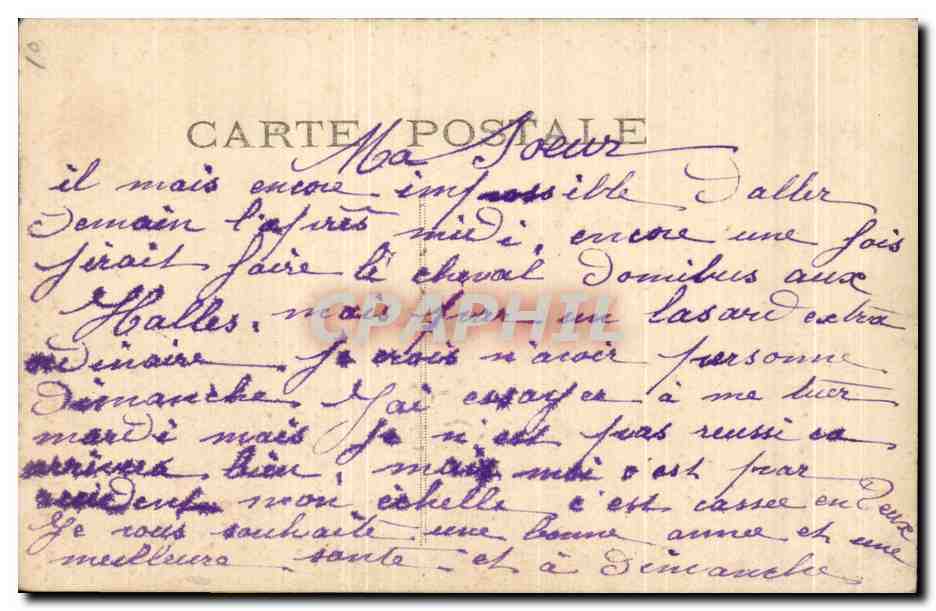 CARTE POSTALE
Ma Soeur
il mais encore impossible Daller
Demain l'après midi, encore une fois
jirait faire le cheval Domibus aux
Halles. mais par un lasard extra
dinaire. Je crois n'avoir personne
Dimanche J'ai essayer à me tuer
mardi mais je n'est pas reussi ca
arrivera bien mais moi c'est par
mon échelle c'est cassee en Deux
Je vous souhaite une bonne annee et une
meilleure sante et à Dimanche
CPAPHIL